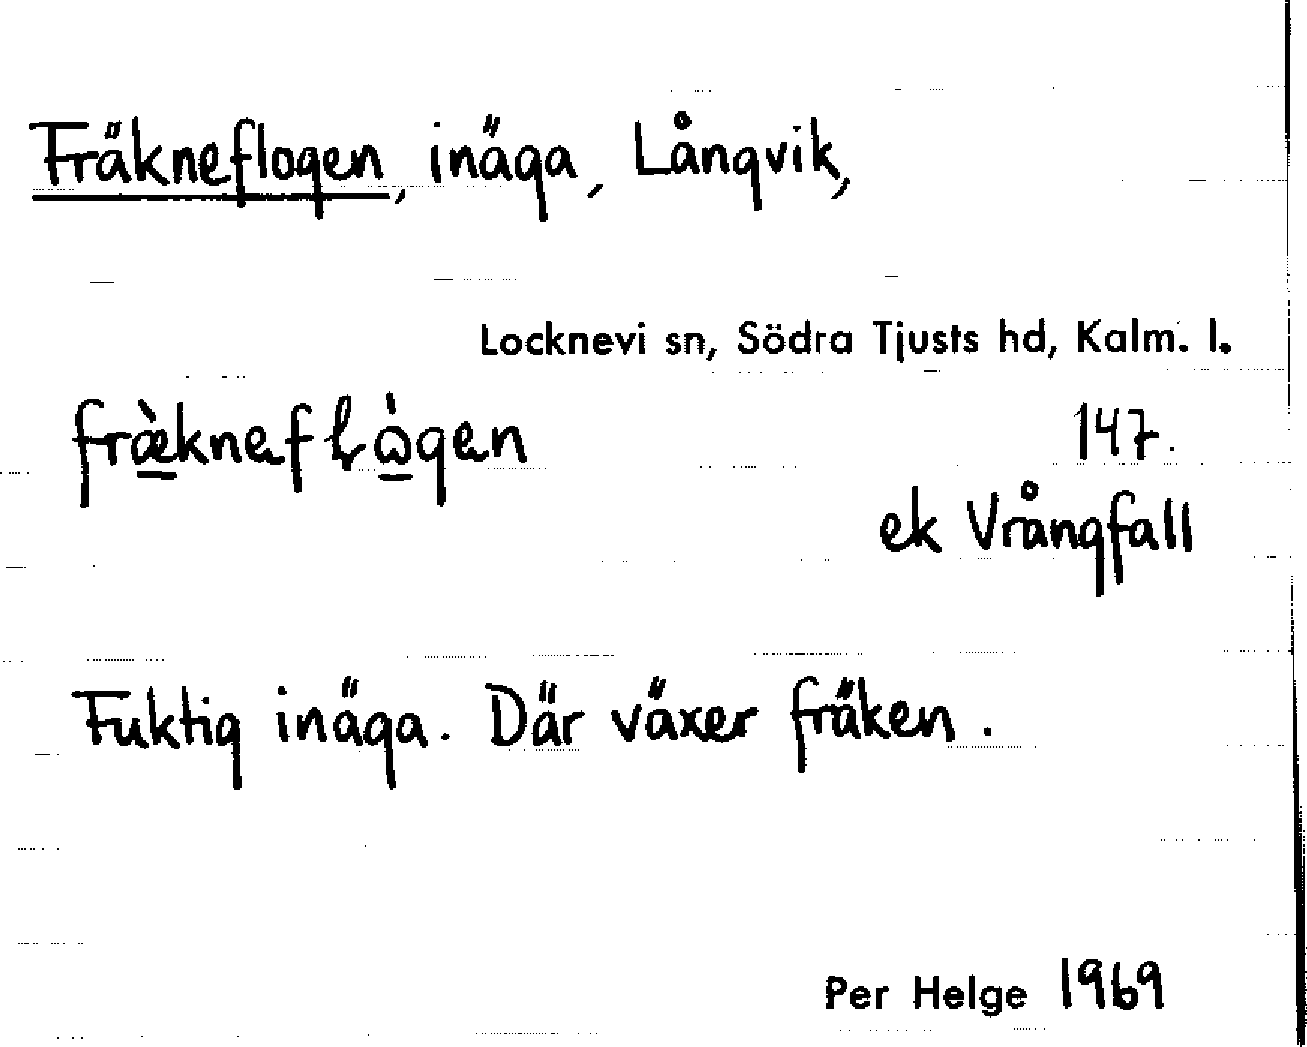 Fräkneflogen, inäga, Långvik,
Locknevi sn, Södra Tjusts hd, Kalm. l.
147.
ek Vrångfall
Fuktig inäga. Där växer fräken.
Per Helge 1969